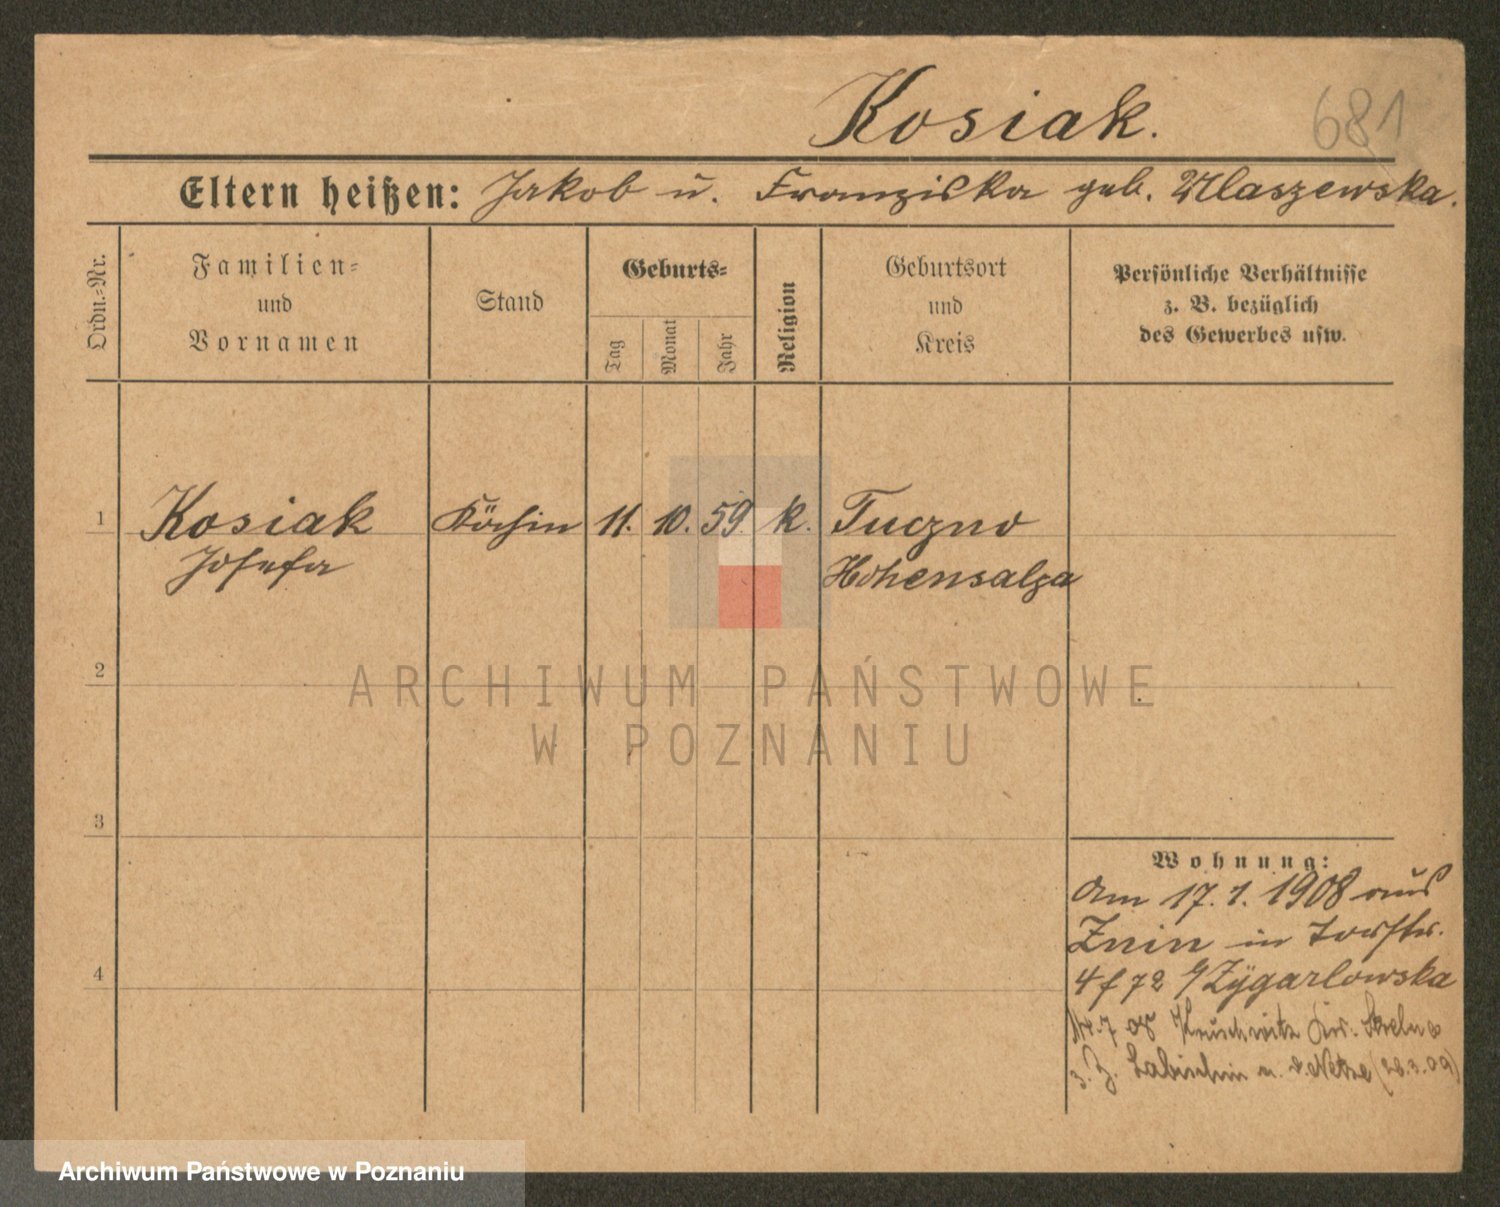 Kosiak.
681
Eltern heißen: Jakob u. Franziska geb. Ulaszewska.
Ordn.=Nr.
Familien=
und
Vornamen
Stand
Geburts=
Tag
Monat
Jahr
Religion
Geburtsort
und
Kreis
Persönliche Verhältnisse
z. B. bezüglich
des Gewerbes usw.
1 Kosiak Köchin 11. 10. 59. k. Tuczno
Josefa Hohensalza
2
ARCHIWUM PAŃSTWOWE
W POZNANIU
3
Wohnung:
Am 17.1.1908 aus
Znin in Torstr.
4 f 72 Zÿgarlowska
14.7 08 Kruschwitz Kr. Strelno
z. Z. Labischin a. d. Netze (26.3.09)
4
Archiwum Państwowe w Poznaniu